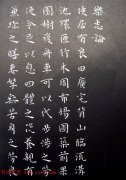 樂志論
使居有良田廣宅背山臨流溝
池環匝竹木周布場圃築前果
園樹後舟車可以代步涉之難
使令足以息四體之役養親有
兼珍之膳妻孥無苦身之勞